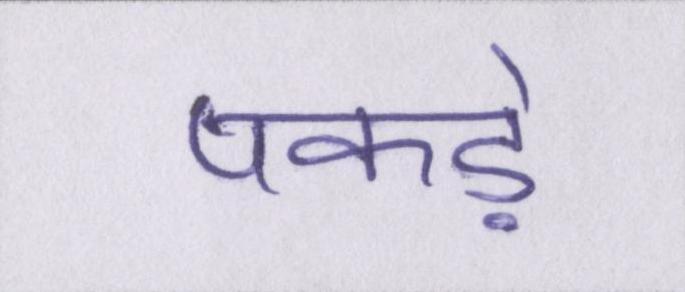 पकड़े